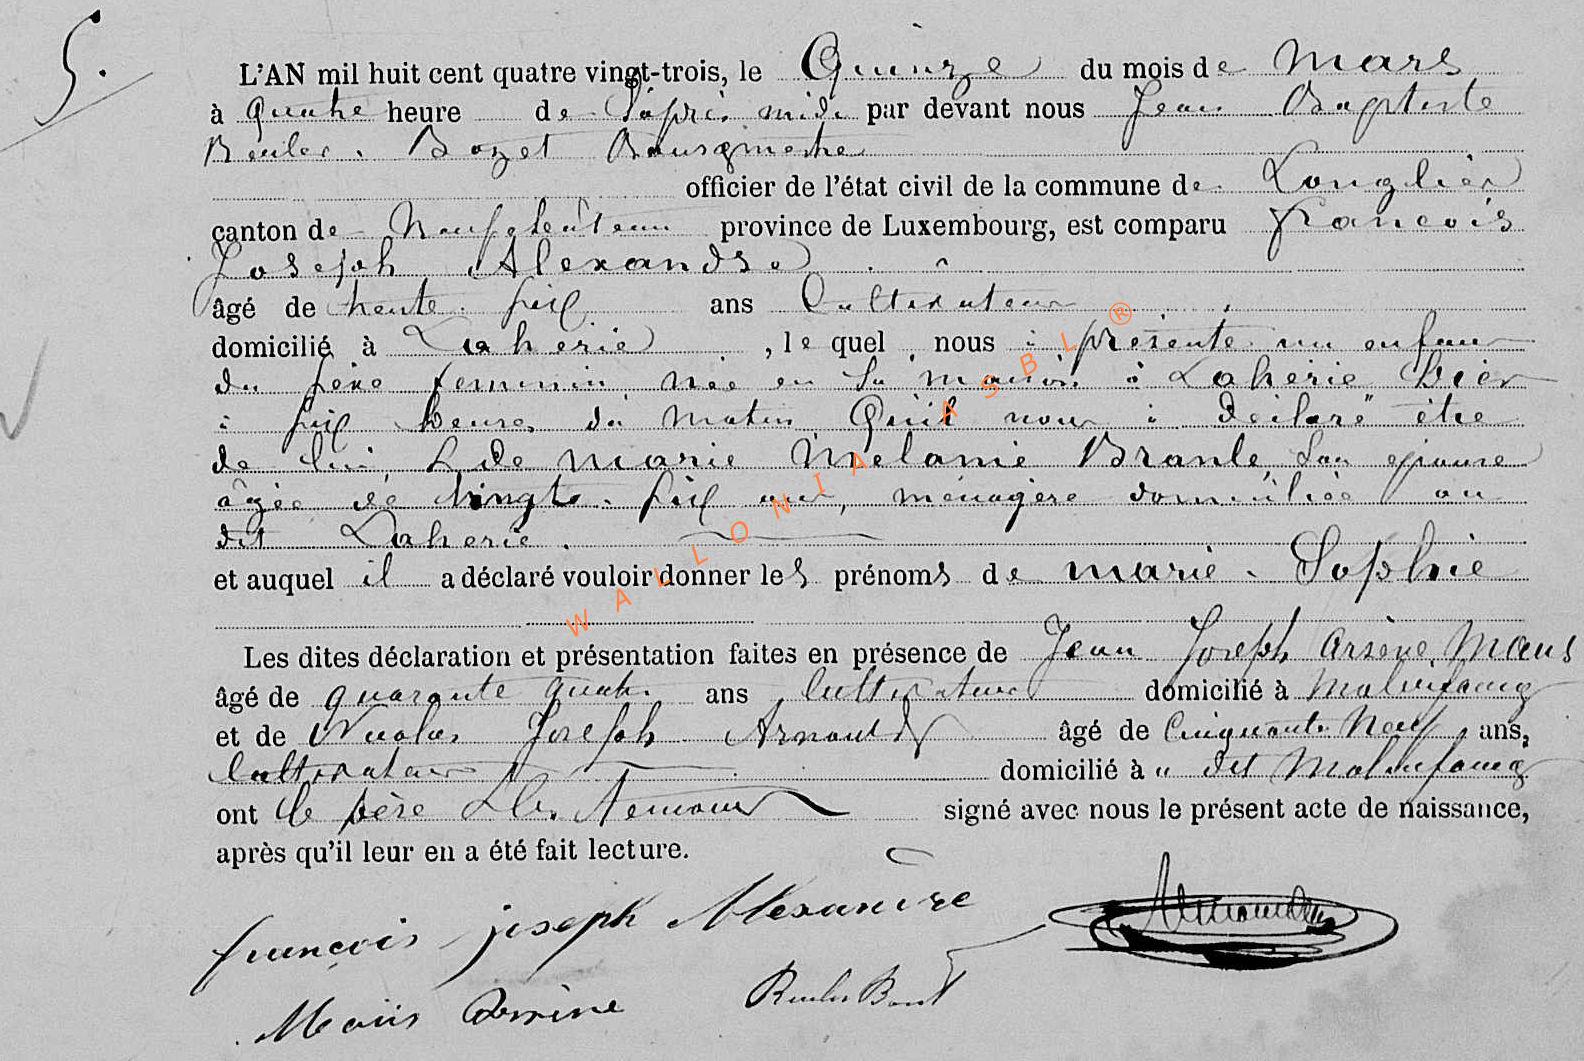 5.
L'AN mil huit cent quatre vingt-trois, le Quinze du mois de Mars
à quatre heure de l'après midi par devant nous Jean Baptiste
Reuler. Bozet Bourgmestre
officier de l'état civil de la commune de Longlier
canton de Neufchâteau province de Luxembourg, est comparu François
Joseph Alexandre
âgé de trente six ans Cultivateur
domicilié à Laherie, le quel nous à présenté un enfant
du sexe féminin née en sa maison à Laherie hier
à six heures du matin Qu'il nous à déclaré être
de lui & de marie Mélanie Branle, Son épouse
âgée de vingt-six ans, ménagère domiciliée au
dit Laherie.
et auquel il a déclaré vouloir donner les prénoms de marie-Sophie
Les dites déclaration et présentation faites en présence de Jean Joseph Arsène Maus
âgé de quarante quatre ans Cultivateur domicilié à Molinfaing
et de Nicolas Joseph Arnould âgé de Cinquante Neuf ans,
Cultivateur domicilié à " dit Molinfaing
ont le père & les témoins signé avec nous le présent acte de naissance,
après qu'il leur en a été fait lecture.
françois joseph Alexandre
Maüs Arsène
WALLONIA ASBL ®